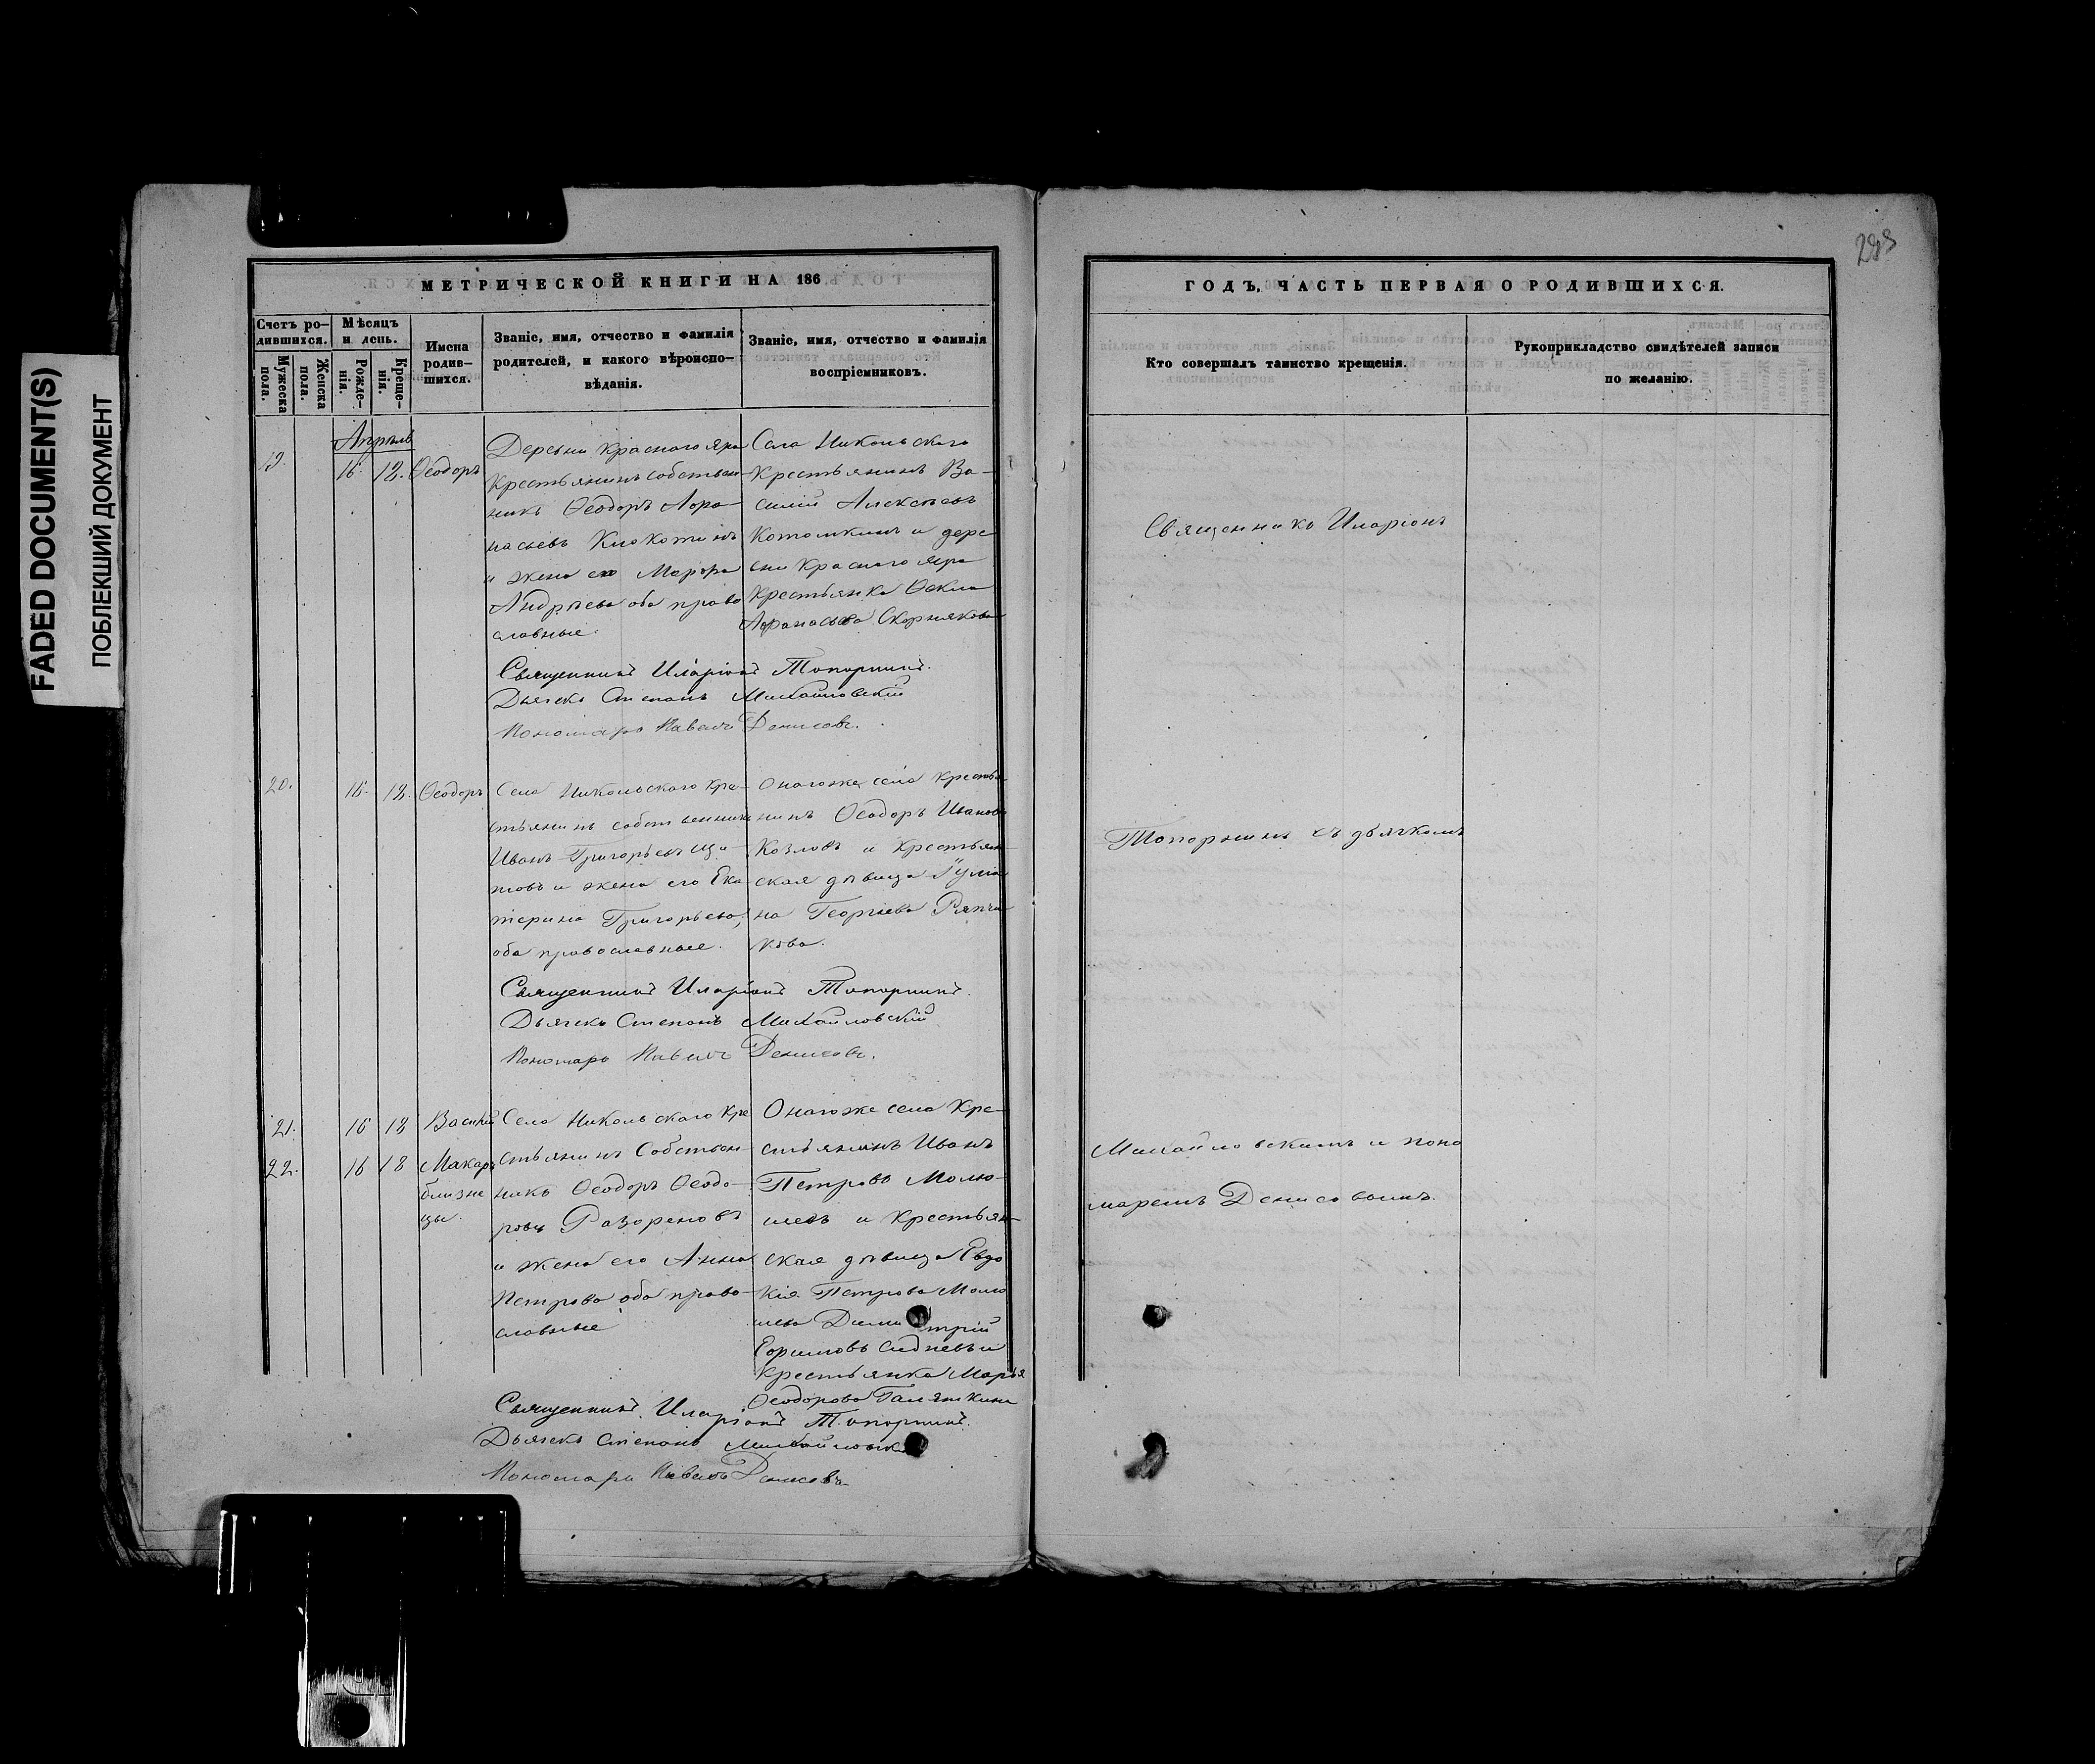 FADED DOCUMENT(S)
ПОБЛЕКШИЙ ДОКУМЕНТ
МЕТРИЧЕСКОЙ КНИГИ НА 186
Счетъ ро-
дившихся.
Мужеска
пола.
Женска
пола.
Мѣсяцъ
и день.
Рожде-
нія.
Креще-
нія.
Имена
родив-
шихся.
Званіе, имя, отчество и фамилія
родителей, и какого вѣроиспо-
вѣданія.
Званіе, имя, отчество и фамилія
воспріемниковъ.
Апрѣль
19. 16. 18. Ѳеодоръ
Деревни Краснаго Яра
Крестьянинъ собствен-
никъ Ѳеодоръ Афа-
насьевъ
и жена его Марфа
Андрѣева оба право
славные.
Села Никольскаго
Крестьянинъ Ва-
силій Алексѣевъ
Котомкинъ и дере
вни Краснаго Яра
Крестьянка Ѳекла
Афанасьева Скорнякова
Священникъ Иларіонъ Топорнинъ.
Дьячекъ Степанъ Михайловскій
Пономарь Павелъ Денисовъ.
20. 16. 18. Ѳеодоръ
Села Никольскаго Кре-
стьянинъ собственникъ
Иванъ Григорьевъ
и жена его Ека
терина Григорьева,
оба православные.
Онагоже села Крестья
нинъ Ѳеодоръ Ивановъ
Козловъ и Крестьян-
ская дѣвица Іуліа
на Георгіева Ряпчи
кова.
Священникъ Иларіонъ Топорнинъ.
Дьячекъ Степанъ Михайловскій
Пономарь Павелъ Денисовъ.
21. 16 18 Василій
22. 16 18 Макаръ
близне
цы.
Села Никольскаго Кре
стьянинъ Собствен-
никъ Ѳеодоръ Ѳеодо-
ровъ Разореновъ
и жена его Анна
Петрова оба право-
славные
Онагоже села Кре-
стьянинъ Иванъ
Петровъ
и Крестьян-
ская дѣвица Евдо
кія Петрова
Димитрій
Ефимовъ Сидневъ и
Крестьянка Марья
Ѳеодорова
Священникъ Иларіонъ Топорнинъ.
Дьячекъ Степанъ
Пономарь Павелъ Денисовъ
ГОДЪ, ЧАСТЬ ПЕРВАЯ О РОДИВШИХСЯ.
Кто совершалъ таинство крещенія.
Рукоприкладство свидѣтелей записи
по желанію.
Священникъ Иларіонъ
Топорнинъ съ дьячкомъ
Михайловскимъ и поно
маремъ Денисовымъ.